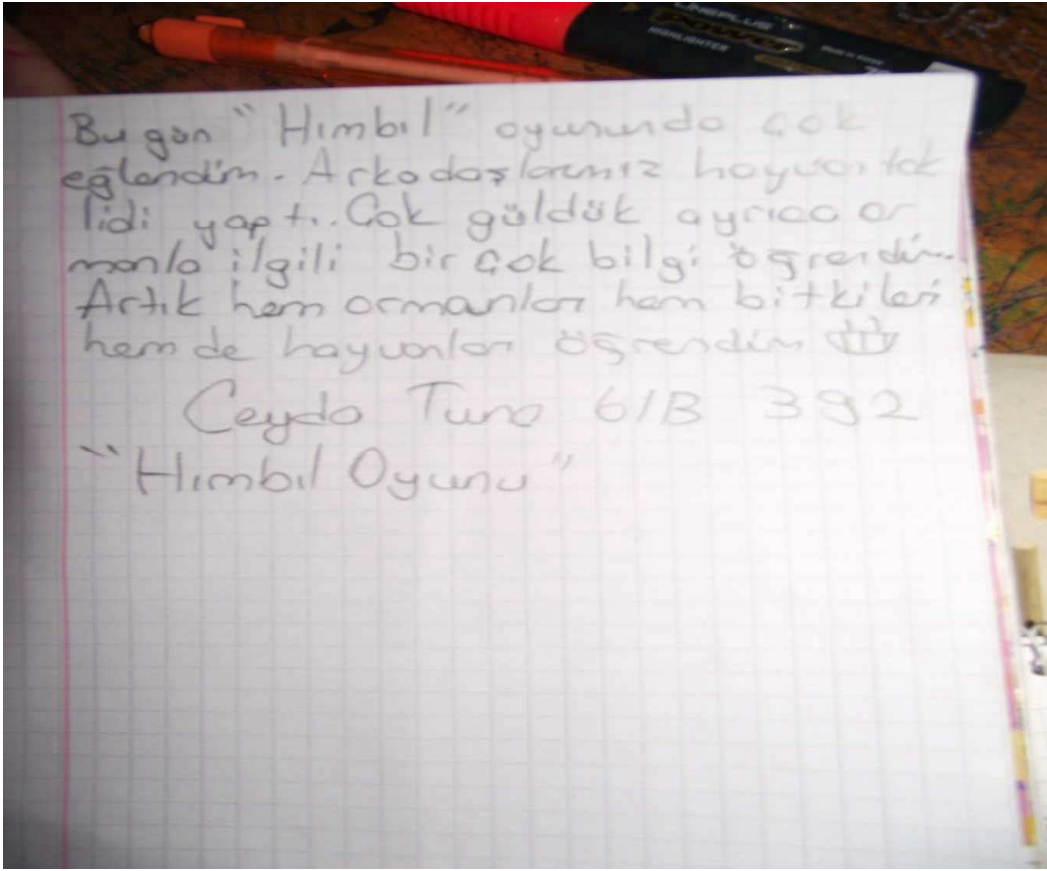 LINEPLUS
POWER
HIGHLIGHTER
Bu gün "Hımbıl" oyununda çok
eğlendim. Arkadaşlarımız hayvan tak
lidi yaptı. Çok güldük ayrıca or
manla ilgili bir çok bilgi öğrendim.
Artık hem ormanları hem bitkileri
hem de hayvanları öğrendim
Ceyda Tuna 6/B 392
"Hımbıl Oyunu"